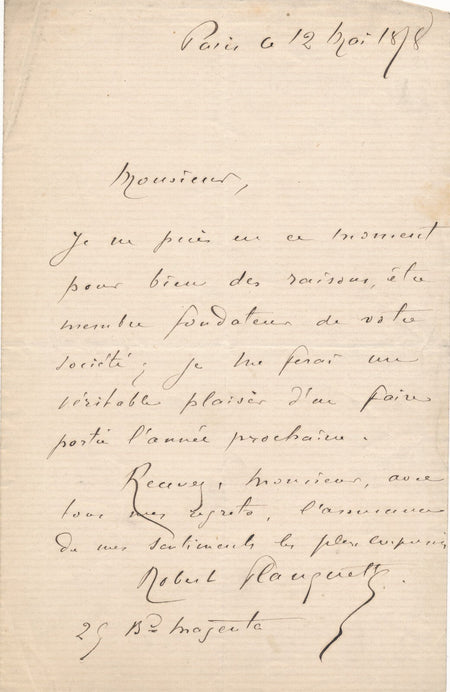 Paris le 12 Mai 1878
Monsieur,
Je ne puis en ce moment
pour bien des raisons, être
membre fondateur de votre
société; je me ferai un
véritable plaisir d'en faire
partie l'année prochaine.
Recevez, Monsieur, avec
tous mes regrets, l'assurance
de mes sentiments les plus empressés
Robert Planquette.
25 Bd Magenta